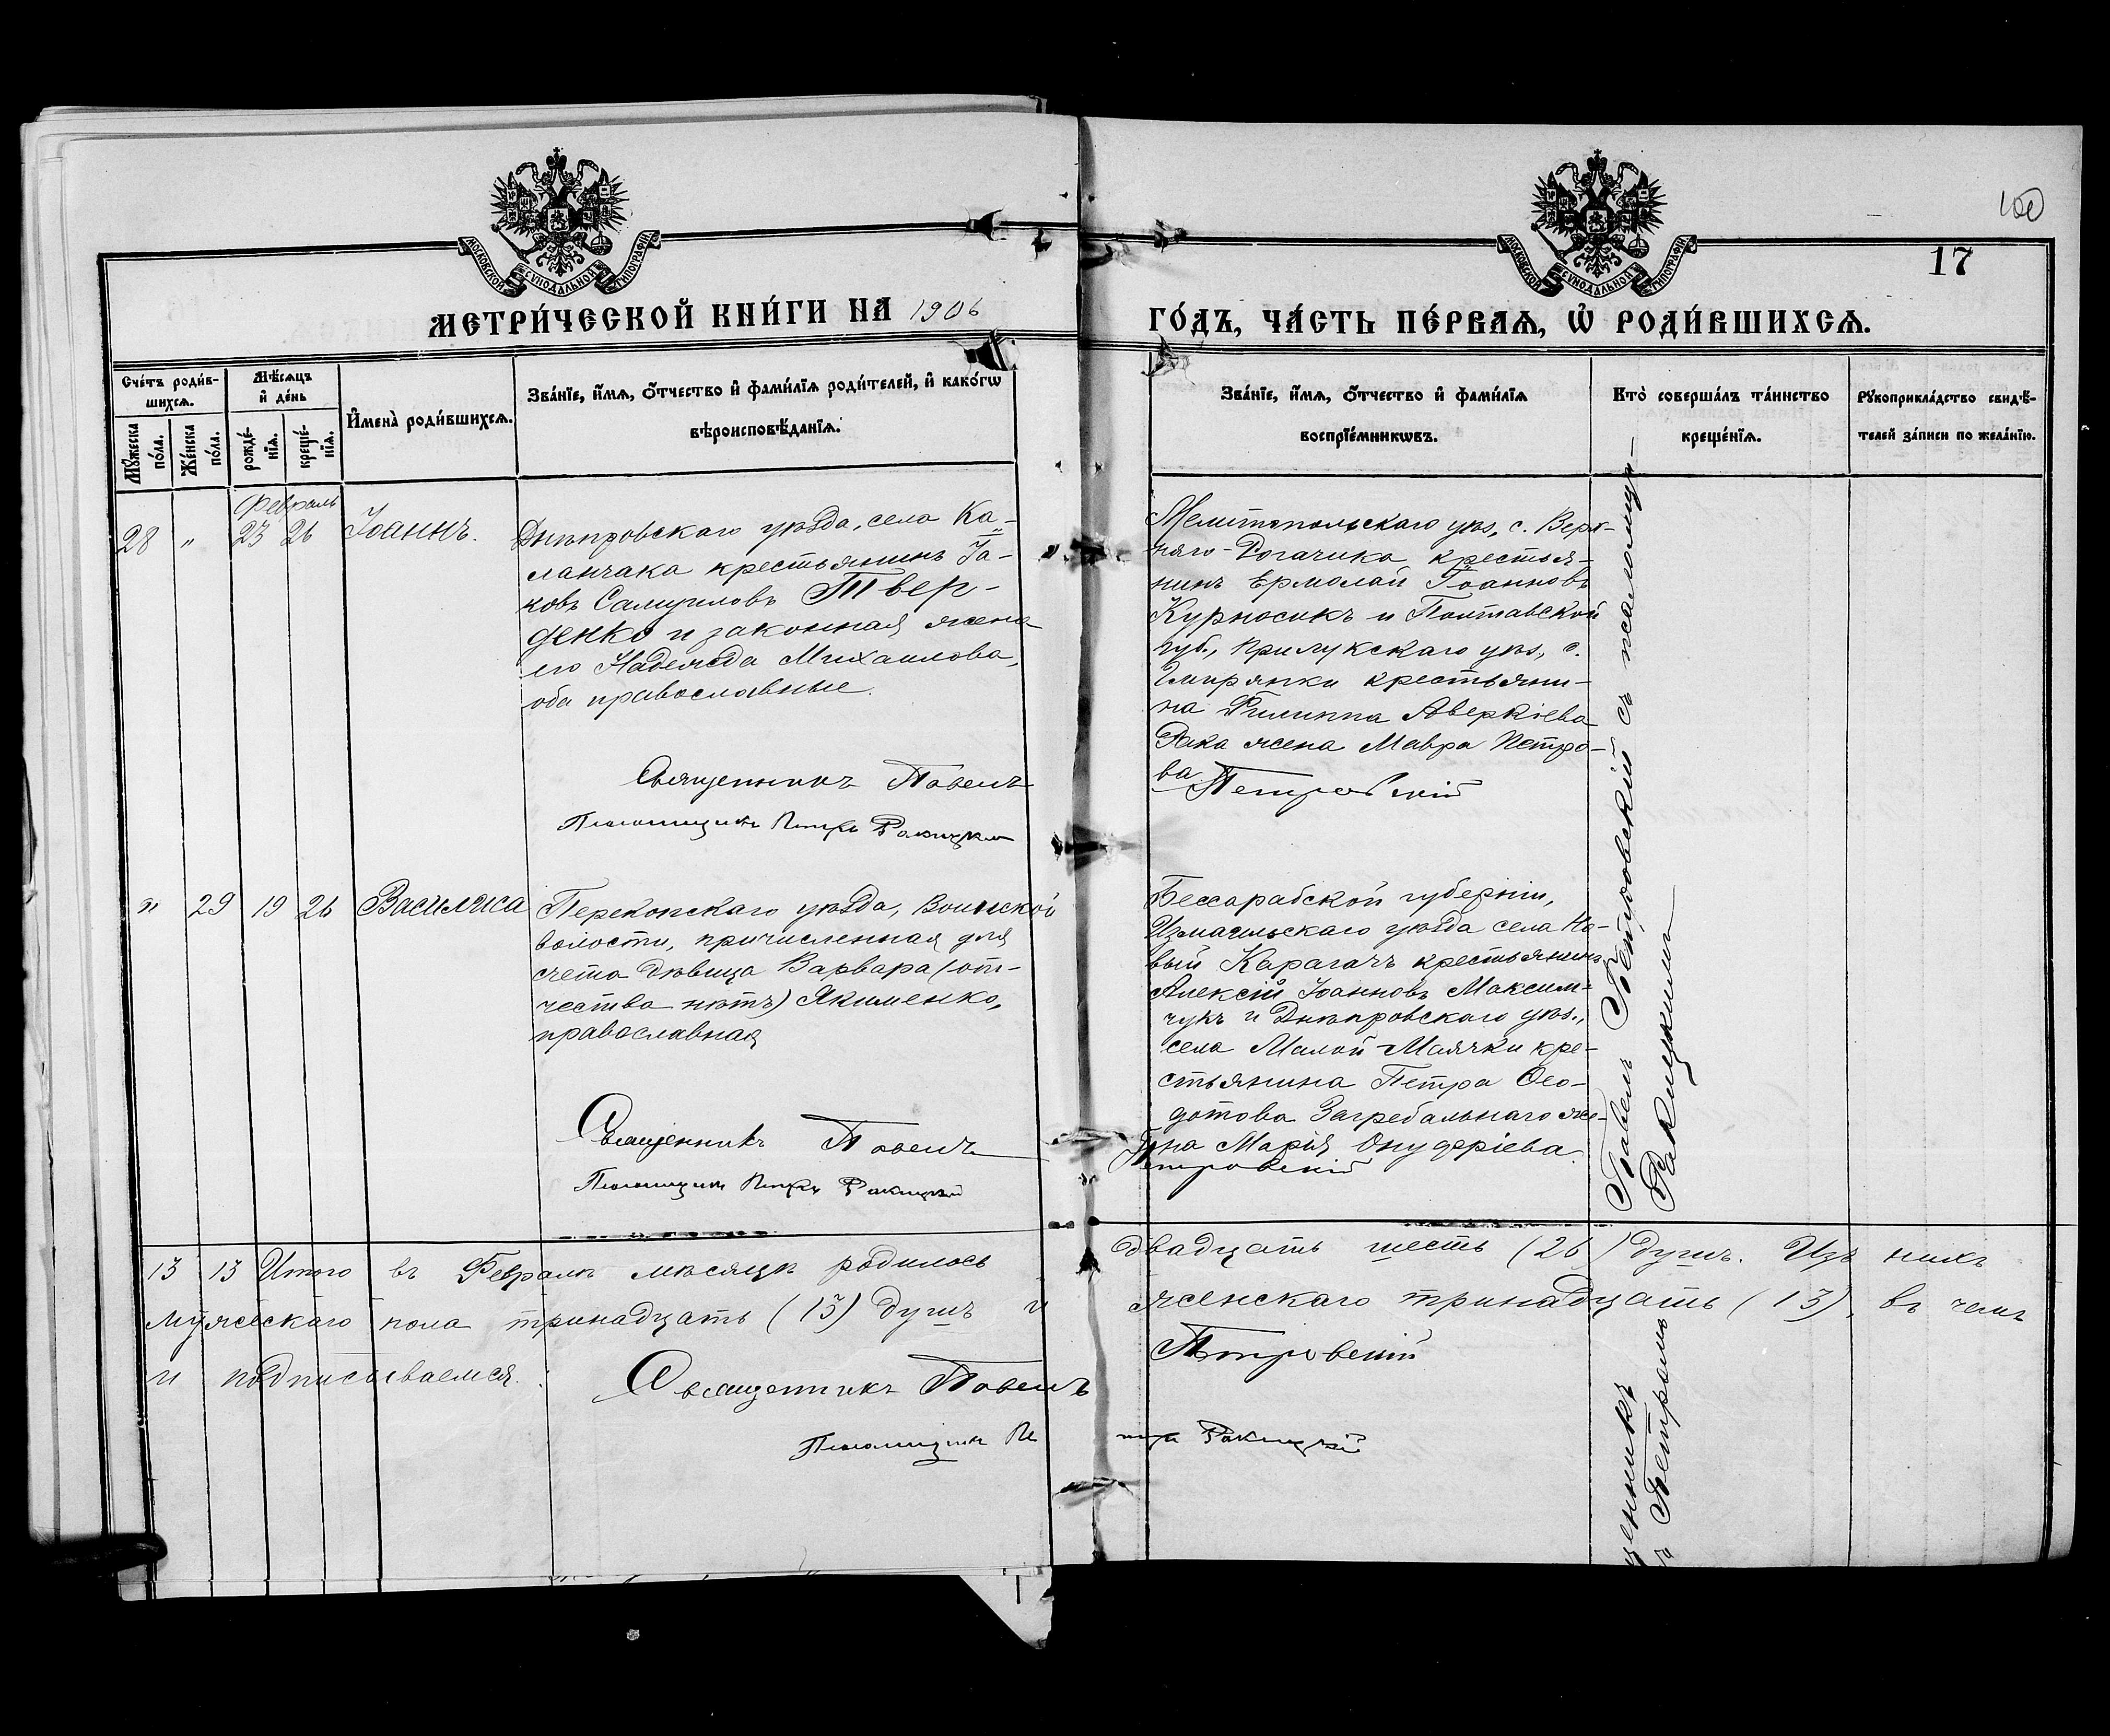 100
17
МОСКОВСКОЙ СѴНОДАЛЬНОЙ ТИПОГРАФІИ
МОСКОВСКОЙ СѴНОДАЛЬНОЙ ТИПОГРАФІИ
МЕТРИ́ЧЕСКОЙ КНИ́ГИ НА 1906
ГО́ДЪ, ЧА́СТЬ ПЕ́РВАѦ, Ѡ҆ РОДИ́ВШИХСѦ.
Сче́тъ роди́в-
шихсѧ.
Мѣ́сѧцъ
и҆ де́нь
Мꙋ́жеска
по́ла.
Же́нска
по́ла.
рожде́-
нїѧ.
креще́-
нїѧ.
И҆мена̀ роди́вшихсѧ.
Зва́нїе, и҆́мѧ, ѻ҆́тчество и҆ фами́лїѧ роди́телей, и҆ како́гѡ
вѣроисповѣ́данїѧ.
Зва́нїе, и҆́мѧ, ѻ҆́тчество и҆ фами́лїѧ
воспрїе́мникѡвъ.
Кто̀ соверша́лъ та́инство
креще́нїѧ.
Рꙋкоприкла́дство свидѣ́-
телей за́писи по жела́нїю.
Февраль
28 " 23 26 Іоаннъ.
Днѣпровскаго уѣзда, села Ка-
ланчака крестьянинъ Іа-
ковъ Самуиловъ Твер-
денко и законная жена
его Надежда Михаилова,
оба православные.
Священникъ Павелъ
Псаломщикъ Петръ Ракицкій
Мелитопольскаго уѣз., с. Верх-
няго-Рогачика крестья-
нинъ Ермолай Іоанновъ
Курносикъ и Полтавской
губ., Прилукскаго уѣз., с.
крестьяни-
на Филиппа Аверкіева
Рака жена Мавра Петро-
ва
Петровскій
" 29 19 26 Василиса
Перекопскаго уѣзда, Воинской
волости, причисленная для
счета дѣвица Варвара (от-
чества нѣтъ) Якименко,
православная
Священникъ Павелъ
Псаломщикъ Петръ Ракицкій
Бессарабской губерніи,
Измаильскаго уѣзда села Но-
вый Карагачъ крестьянинъ
Алексій Іоанновъ Максим-
чукъ и Днѣпровскаго уѣз.,
села Малой-Маячки кре-
стьянина Петра Ѳео-
дотова Загребальнаго же-
на Марія Онуфріева.
Петровскій
щенникъ Павелъ Петровскій съ псаломщи-
Петромъ Ракицкимъ
13 13 Итого въ Февралѣ мѣсяцѣ родилось
двадцать шесть (26) душъ. Изъ нихъ
мужескаго пола тринадцать (13) душъ и
женскаго тринадцать (13), въ чемъ
и подписываемся.
Священникъ Павелъ
Петровскій
Псаломщикъ Пе
тръ Ракицкій